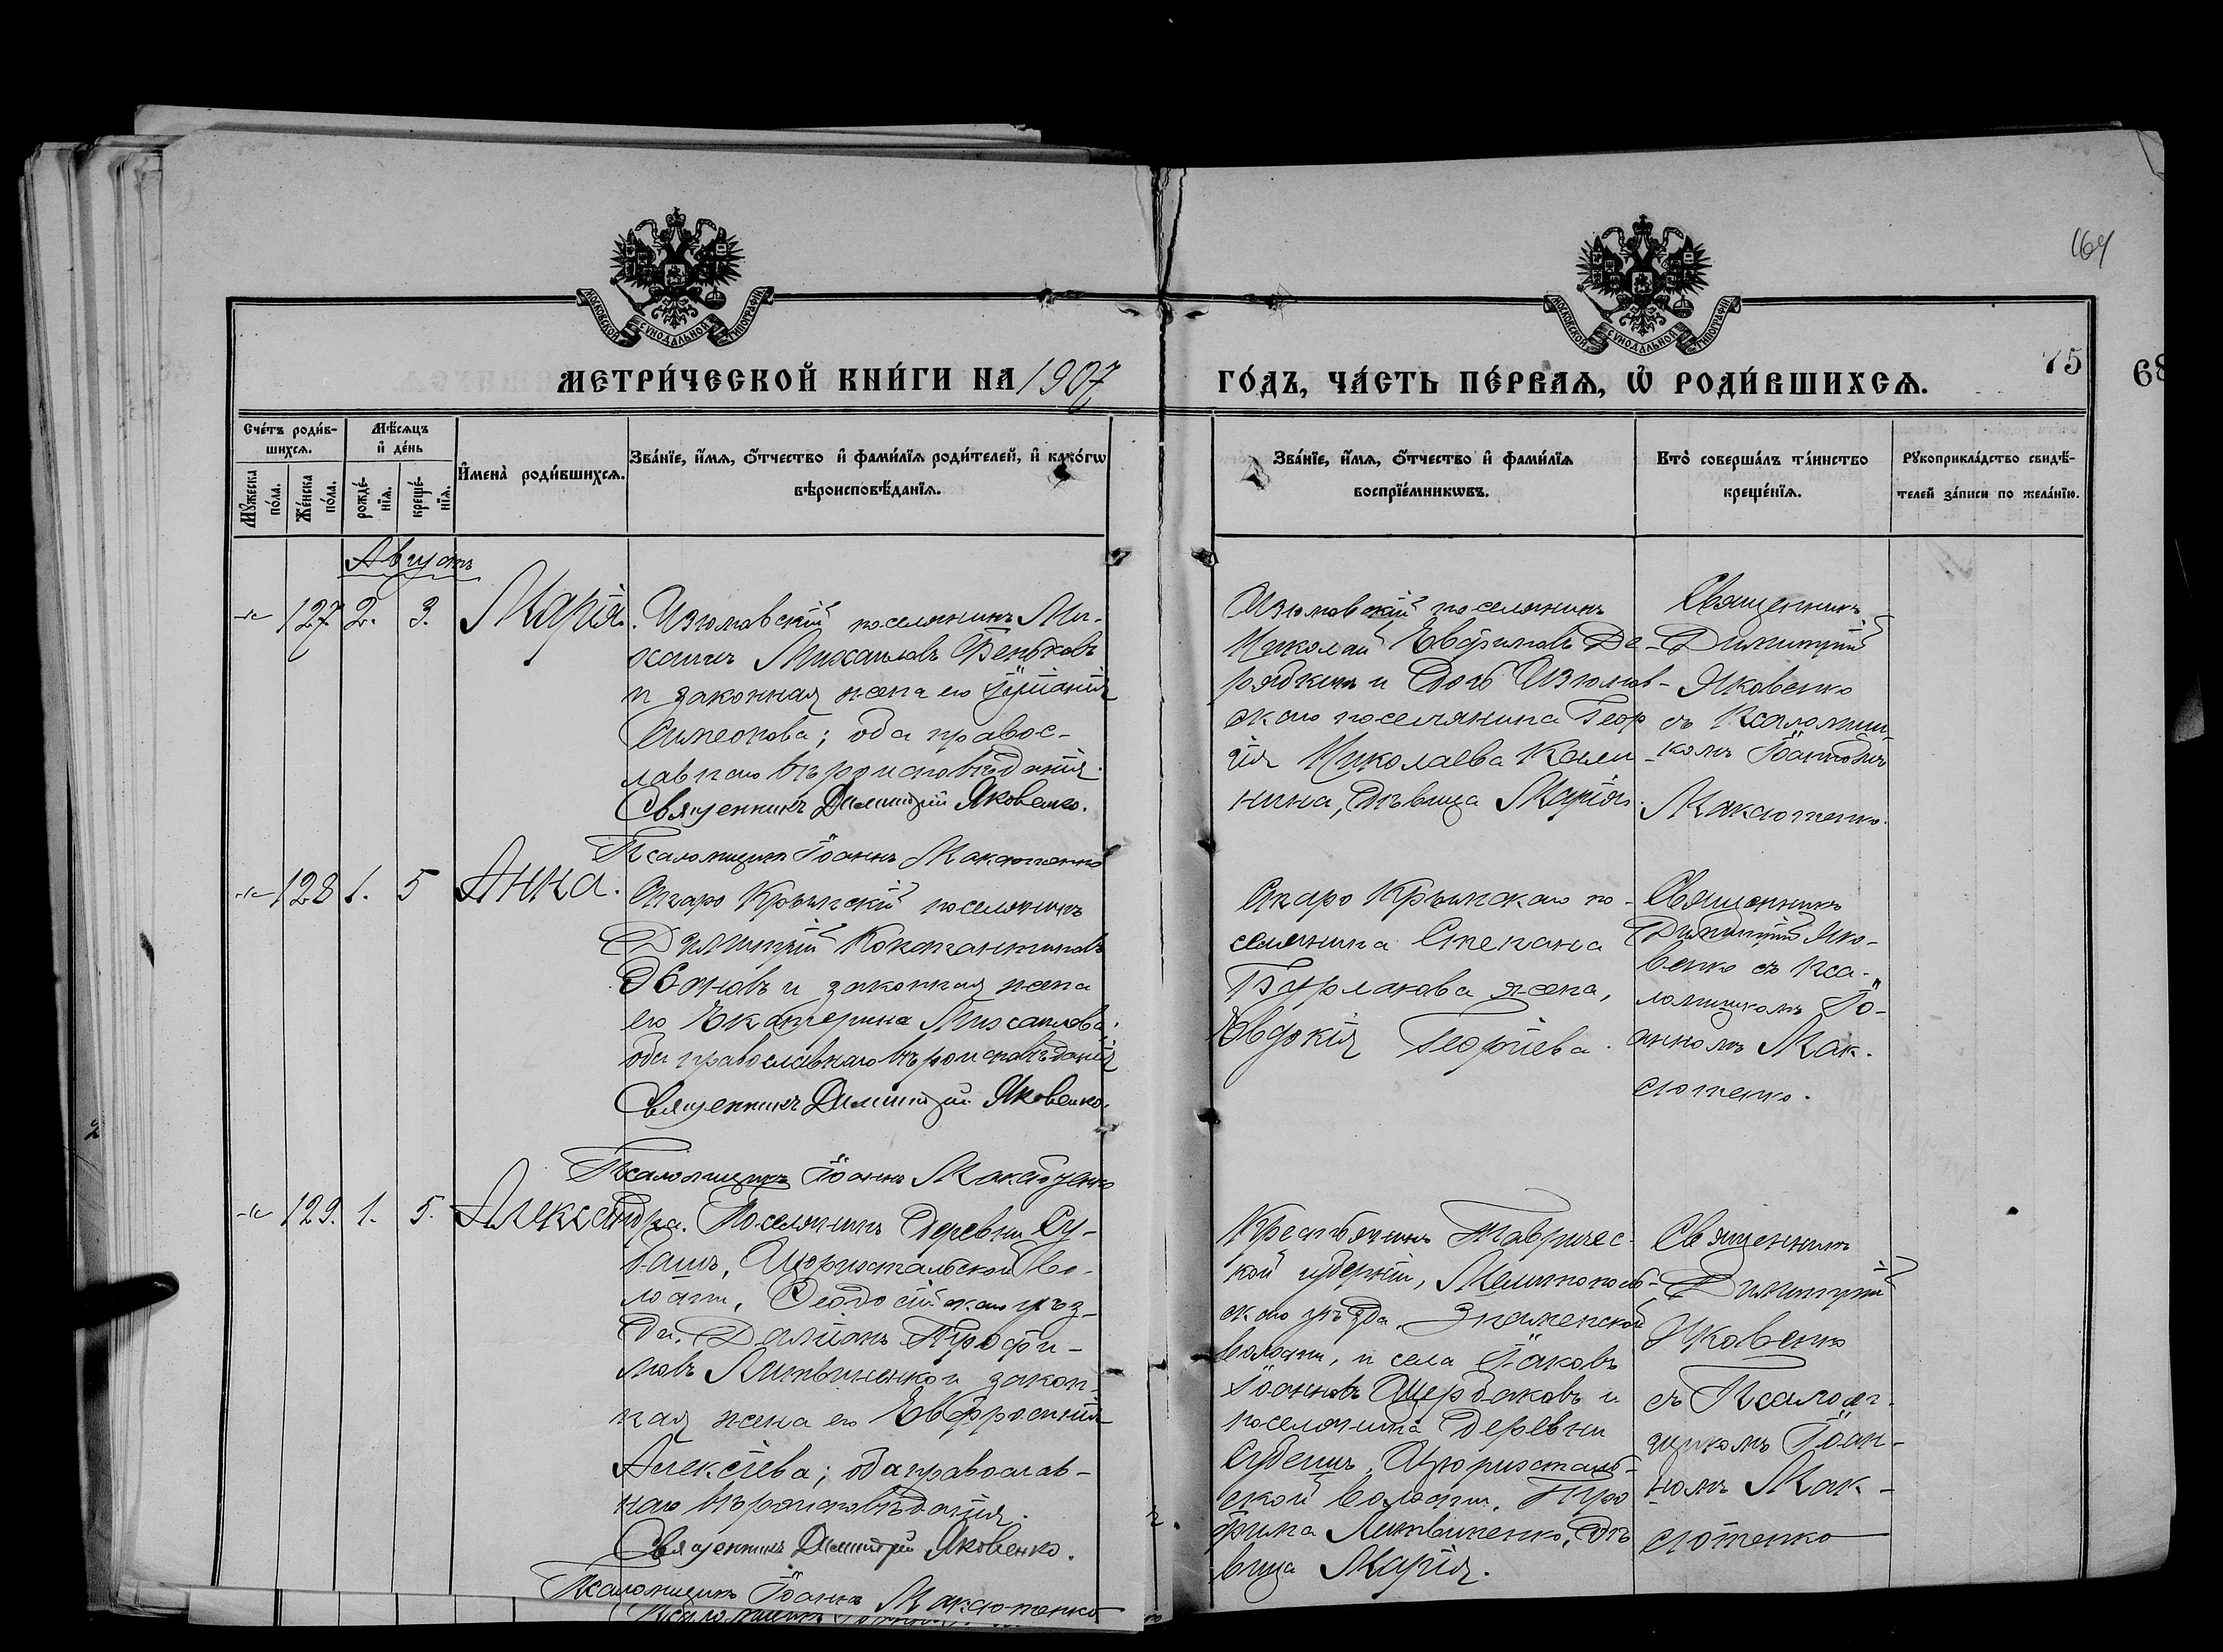 164
МОСКОВСКОЙ СУНОДАЛЬНОЙ ТИПОГРАФІИ
МОСКОВСКОЙ СУНОДАЛЬНОЙ ТИПОГРАФІИ
75
68
МЕТРИ́ЧЕСКОЙ КНИ́ГИ НА 1907
ГО́ДЪ, ЧА́СТЬ ПЕ́РВАѦ, Ѡ҆ РОДИ́ВШИХСѦ.
Сче́тъ роди́в-
шихсѧ.
Мꙋ́жеска
по́ла.
Же́нска
по́ла.
Мѣ́сѧцъ
и҆ де́нь
рожде́-
нїѧ.
креще́-
нїѧ.
И҆мена̀ роди́вшихсѧ.
Зва́нїе, и҆́мѧ, ѻ҆́тчество и҆ фами́лїѧ роди́телей, и҆ како́гѡ
вѣроисповѣ́данїѧ.
Зва́нїе, и҆́мѧ, ѻ҆́тчество и҆ фами́лїѧ
воспрїе́мникѡвъ.
Кто̀ соверша́лъ та́инство
креще́нїѧ.
Рꙋкоприкла́дство свидѣ́-
телей за́писи по жела́нїю.
Августъ
127 2. 3. Марія.
Изюмовскій поселянинъ Ми-
хаилъ Михаиловъ Беньковъ
и законная жена его Іуліанія
Симеонова; оба правос-
лавнаго вѣроисповѣданія.
Священникъ Димитрій Яковенко.
Псаломщикъ Іоаннъ Максютенко
Изюмовскій поселянинъ
Николай Евфимовъ Де-
рябкинъ и дочь Изюмов-
скаго поселянина Геор
гія Николаева Кали-
нина, дѣвица Марія.
Священникъ
Димитрій
Яковенко
съ Псаломщи-
комъ Іоанномъ
Максютенко.
128 1. 5 Анна.
Старо Крымскій поселянинъ
Димитрій Константиновъ
и законная жена
его Екатерина Михаилова;
оба православнаго вѣроисповѣданія
Священникъ Димитрій Яковенко.
Псаломщикъ Іоаннъ Максютенко
Старо Крымскаго по-
селянина Стефана
Бурлакова жена,
Евдокія Георгіева.
Священникъ
Димитрій Яко-
венко съ Пса-
ломщикомъ Іо-
анномъ Мак-
сютенко.
129. 1. 5. Александра.
Поселянинъ деревни Су-
башъ, Цюрихтальской во-
лости, Ѳеодосійскаго уѣз-
да, Даміанъ Трофи-
мовъ Литвиненко и закон-
ная жена его Евфросинія
Алексіева; оба православ-
наго вѣроисповѣданія.
Священникъ Димитрій Яковенко.
Псаломщикъ Іоаннъ Максютенко
Крестьянинъ Тавричес-
кой губерніи, Мелитополь-
скаго уѣзда, Знаменской
волости, и села Іаковъ
Іоанновъ Щербаковъ и
поселянина деревни
Субашъ, Цюрихталь-
ской волости, Тро
фима Литвиненко, дѣ
вица Марія.
Священникъ
Димитрій
Яковенко
съ Псалом-
щикомъ Іоан-
номъ Мак-
сютенко